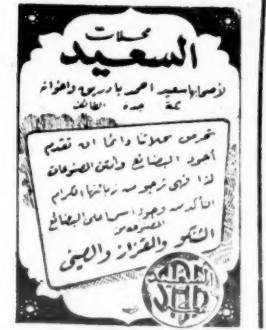 محلات
السعيد
لأصحابها سعيد احمد بادريق واخوانه
مكة جدة الطائف
تحرص محلاتنا دائما ان تقدم
أجود البضائع وأتقن المصنوعات
لذا فهى ترجو من زبائنها الكرام
التأكد من وجود اسمها على البضائع
المصنوعة من
التنكو والقزاز والصينى